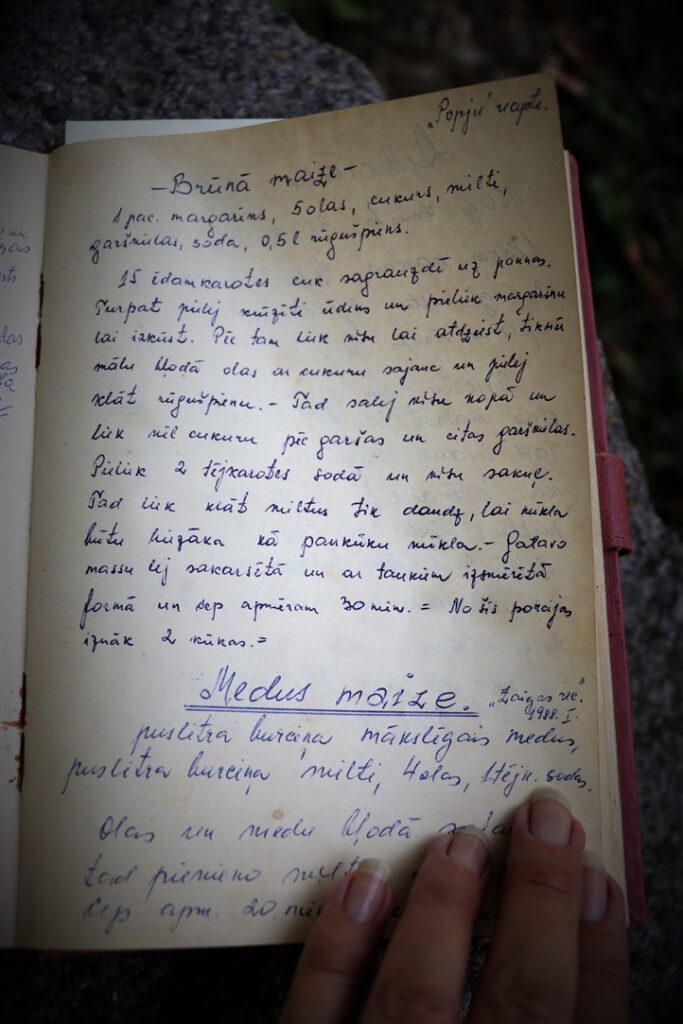 „Popju” recepte.
— Brūnā maize —
1 pac. margarins, 5 olas, cukurs, milti,
garšvielas, soda, 0,5 l rūgušpiens.
15 ēdamkarotes cuk. sagrauzdē uz pannas.
Turpat pielej krūzīti ūdens un pieliek margarīnu
lai izkūst. Pēc tam liek visu lai atdziest, tikmēr
māla bļodā olas ar cukuru sajauc un pielej
klāt rūgušpienu. – Tad salej visu kopā un
liek vēl cukuru pēc garšas un citas garšvielas.
Pieliek 2 tējkarotes sodā un visu sakuļ.
Tad liek klāt miltus tik daudz, lai mīkla
būtu biezāka kā pankūku mīkla. – Gatavo
massu lej sakarsētā un ar taukiem izsmērētā
formā un cep apmēram 30 min. = No šīs porcijas
iznāk 2 kūkas. =
Medus maize. „Zaigas rec.”
1988. I.
puslitra burciņa mākslīgais medus,
puslitra burciņa milti, 4 olas, 1 tējk. sodas.
Olas un medu bļodā
tad pievieno
Cep apm. 20